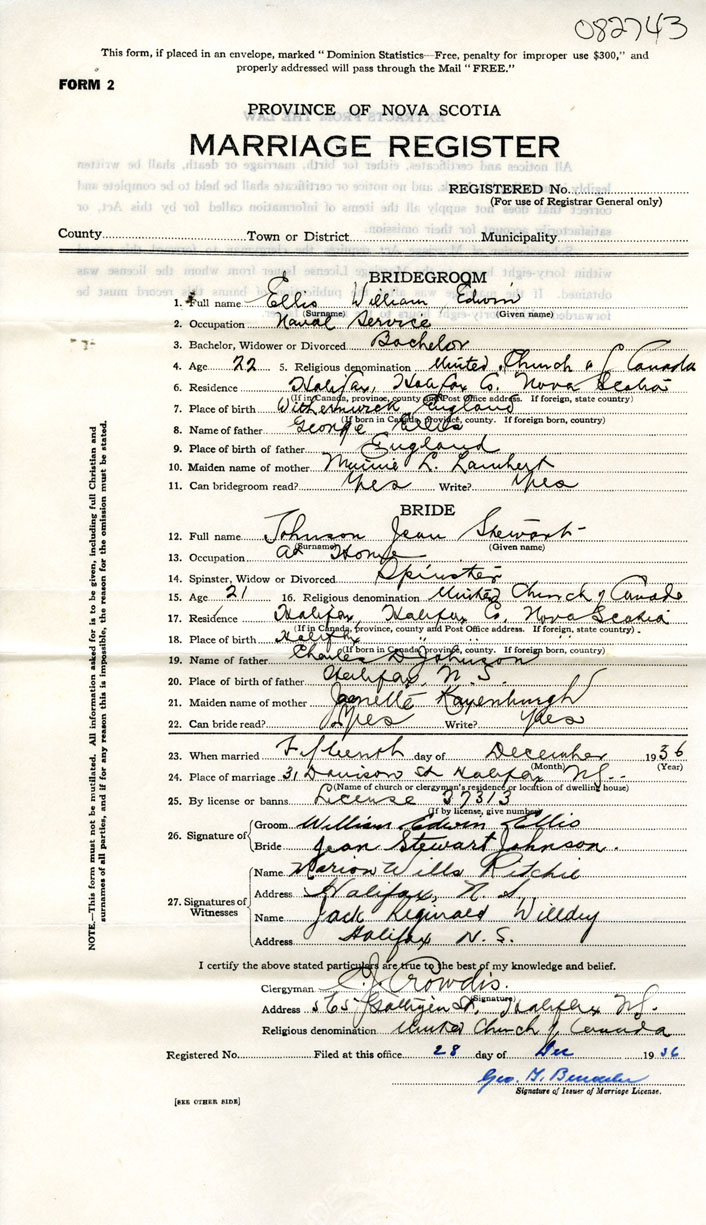 082743
This form, if placed in an envelope, marked "Dominion Statistics—Free, penalty for improper use $300," and
properly addressed will pass through the Mail "FREE."
FORM 2
PROVINCE OF NOVA SCOTIA
MARRIAGE REGISTER
REGISTERED No.
(For use of Registrar General only)
County Town or District Municipality
BRIDEGROOM
1. Full name Ellis William Edwin
(Surname) (Given name)
2. Occupation Naval Service
3. Bachelor, Widower or Divorced Bachelor
4. Age 22 5. Religious denomination United Church of Canada
6. Residence Halifax, Halifax Co. Nova Scotia
(If in Canada, province, county and Post Office address. If foreign, state country)
7. Place of birth England
(If born in Canada, province, county. If foreign born, country)
8. Name of father George Ellis
9. Place of birth of father England
10. Maiden name of mother Minnie L. Lambert
11. Can bridegroom read? Yes Write? Yes
BRIDE
12. Full name Johnson Jean Stewart
(Surname) (Given name)
13. Occupation At Home
14. Spinster, Widow or Divorced Spinster
15. Age 21 16. Religious denomination United Church of Canada
17. Residence Halifax, Halifax Co. Nova Scotia
(If in Canada, province, county and Post Office address. If foreign, state country)
18. Place of birth Halifax " " "
(If born in Canada, province, county. If foreign born, country)
19. Name of father Charles D Johnson
20. Place of birth of father Halifax, N. S.
21. Maiden name of mother Janette
22. Can bride read? Yes Write? Yes
23. When married Fifteenth day of December 1936
(Month) (Year)
24. Place of marriage 31 Davison St Halifax NS.
(Name of church or clergyman's residence or location of dwelling house)
25. By license or banns License 37313
(If by license, give number)
26. Signature of Groom William Edwin Ellis
Bride Jean Stewart Johnson.
27. Signatures of Witnesses Name Marion Wills Ritchie
Address Halifax, N. S.
Name Jack Reginald
Address Halifax N. S.
I certify the above stated particulars are true to the best of my knowledge and belief.
Clergyman Crowdis.
(Signature)
Address 565 Gottingen St, Halifax NS.
Religious denomination United Church of Canada
Registered No. Filed at this office 28 day of Dec 1936
Geo. H.
Signature of Issuer of Marriage License.
[SEE OTHER SIDE]
NOTE.—This form must not be mutilated. All information asked for is to be given, including full Christian and
surnames of all parties, and if for any reason this is impossible, the reason for the omission must be stated.